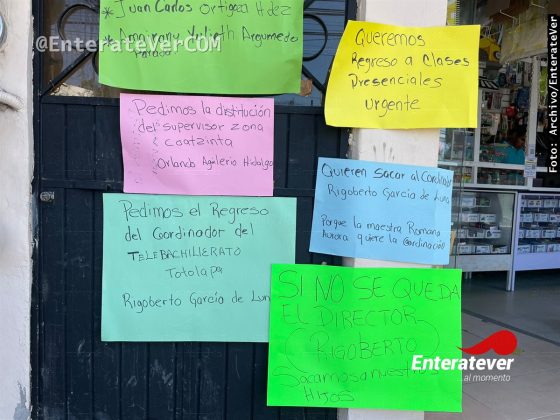 * Juan Carlos Ortigoza Hdez
* Amairany Yulieth Argumedo
Parada
@EnterateverCOM
Queremos
Regreso a Clases
Presenciales
Urgente
Foto: Archivo/Enteratever
Pedimos la distitución
del supervisor zona
Coatzinta
Orlando Agilerio Hidalgo
Quieren Sacar al Cordinador
Rigoberto García de Luna
Porque la maestra Romano
Aurora quiere la Cordinación
Pedimos el Regreso
del Coordinador del
TELEBACHILLERATO
Totolapa
Rigoberto García de Lun
SI NO SE QUEDA
EL DIRECTOR
(RIGOBERTO)
Sacamos a nuestros
Hijos
Enteratever
al momento